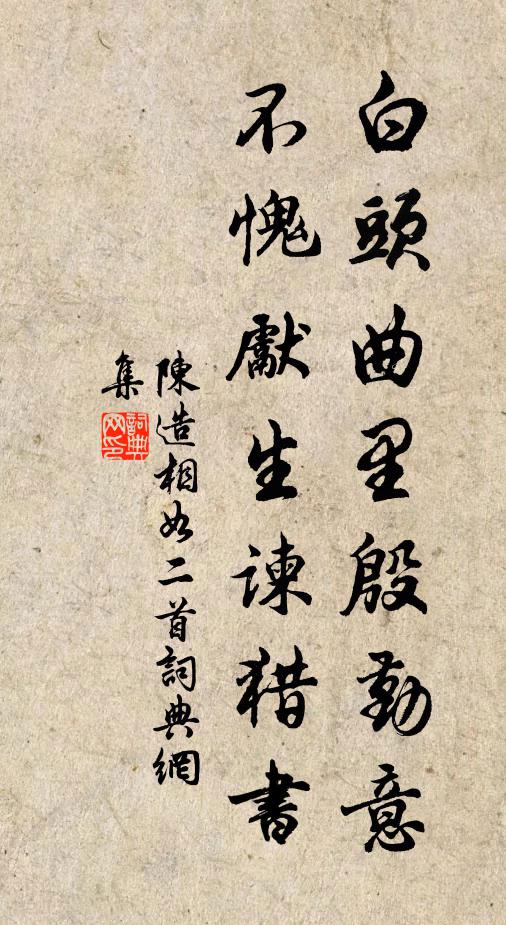 白頭曲里殷勤意
不愧獻生諫猎書
陳造相如二首詞典網
集
詞典
网印